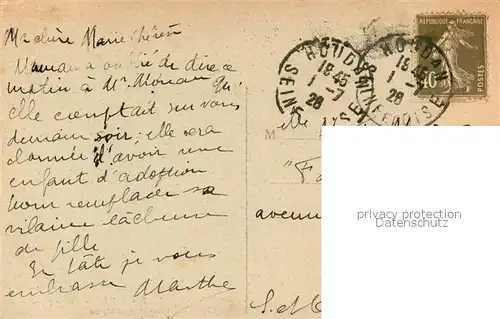 Ma chère Marie Thérèse
Maman a oublié de dire ce
matin à Mr. Moreau qu'
elle comptait sur vous
demain soir; elle sera
d'avoir une
enfant d'adoption
pour remplacer sa
vilaine lâcheuse
de fille
En hâte je vous
embrasse Marthe
M elle
"Fa
avenue
S. M
HOUDAN
18 45
1 -7
28
SEINE
HOUDAN
18 45
1 -7
28
SEINE ET OISE
REPUBLIQUE FRANÇAISE
40
POSTES
privacy protection
Datenschutz